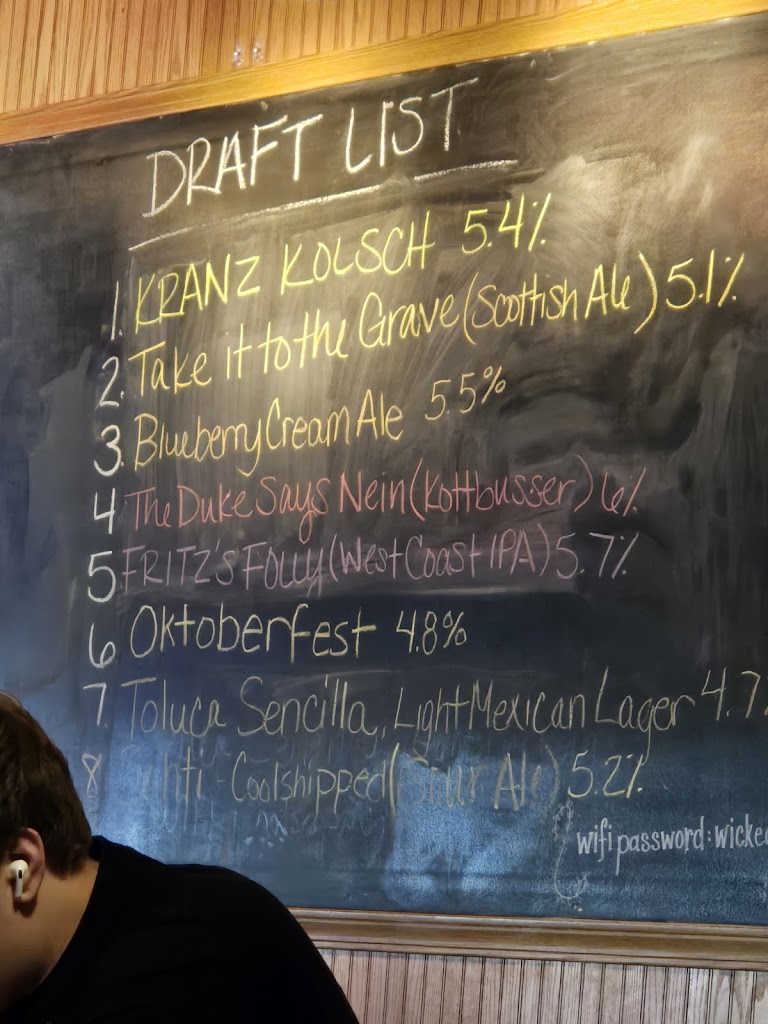 DRAFT LIST
1. KRANZ KOLSCH 5.4%
2. Take it to the Grave (Scottish Ale) 5.1%
3. Blueberry Cream Ale 5.5%
4 The Duke Says Nein (Kottbusser) 6%
5 FRITZ'S FOLLY (West Coast IPA) 5.7%
6 Oktoberfest 4.8%
7. Toluca Sencilla, Light Mexican Lager 4.7
8 - Coolshipped (Sour Ale) 5.2%
wifi password: wicked